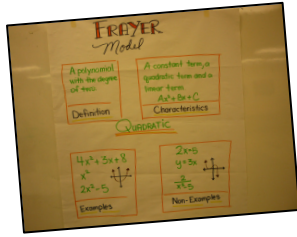 FRAYER
Model
A polynomial
with the degree
of two.
Definition
A constant term, a
quadratic term and a
linear term
Ax²+Bx+C
Characteristics
QUADRATIC
4x²+3x+8
x²
2x²-5
Examples
2x+5
y=3x
2
x²-5
Non-Examples